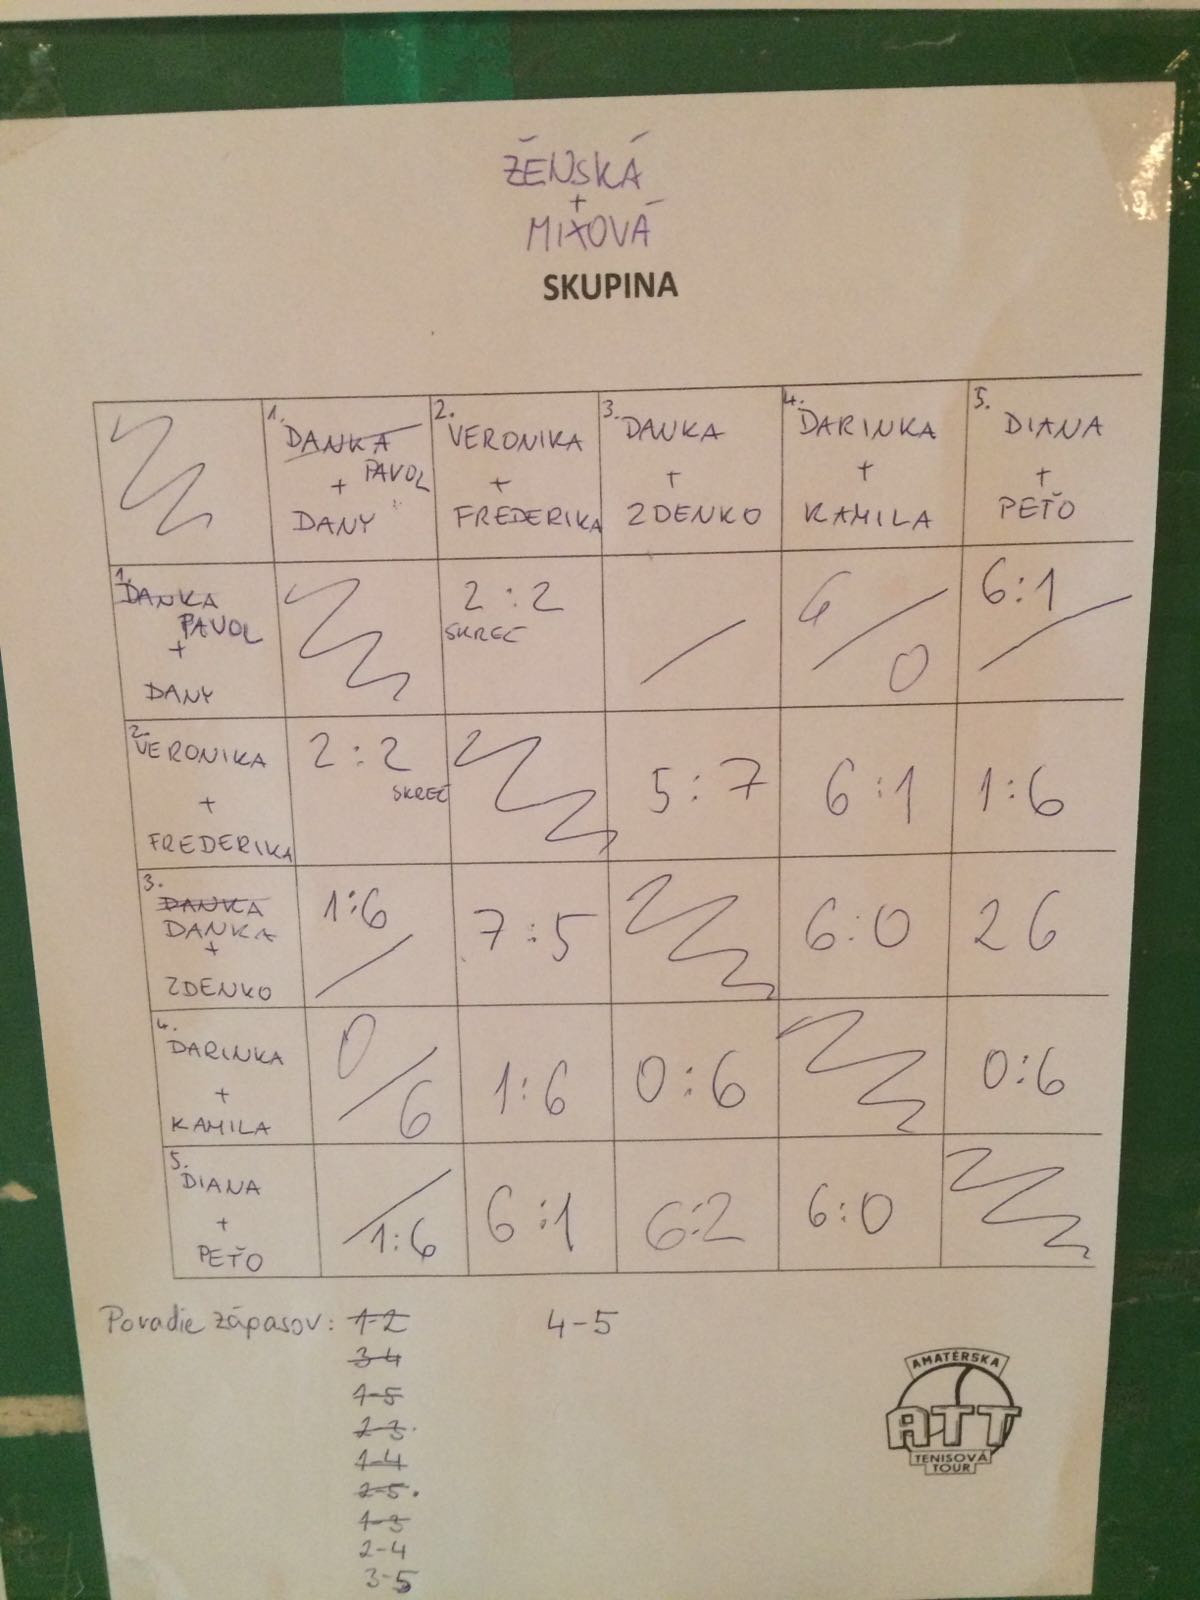 ŽENSKÁ
+
MIXOVÁ
SKUPINA
1. DANKA PAVOL + DANY
2. VERONIKA + FREDERIKA
3. DANKA + ZDENKO
4. DARINKA + KAMILA
5. DIANA + PEŤO
1. DANKA PAVOL + DANY
2:2 SKREČ
6/0
6:1
2. VERONIKA + FREDERIKA
2:2 SKREČ
5:7
6:1
1:6
3. DANKA DANKA + ZDENKO
1:6
7:5
6:0
2 6
4. DARINKA + KAMILA
0/6
1:6
0:6
0:6
5. DIANA + PEŤO
1:6
6:1
6:2
6:0
Poradie zápasov: 1-2 4-5
3-4
1-5
2-3
1-4
2-5
1-3
2-4
3-5
AMATÉRSKA
ATT
TENISOVÁ
TOUR